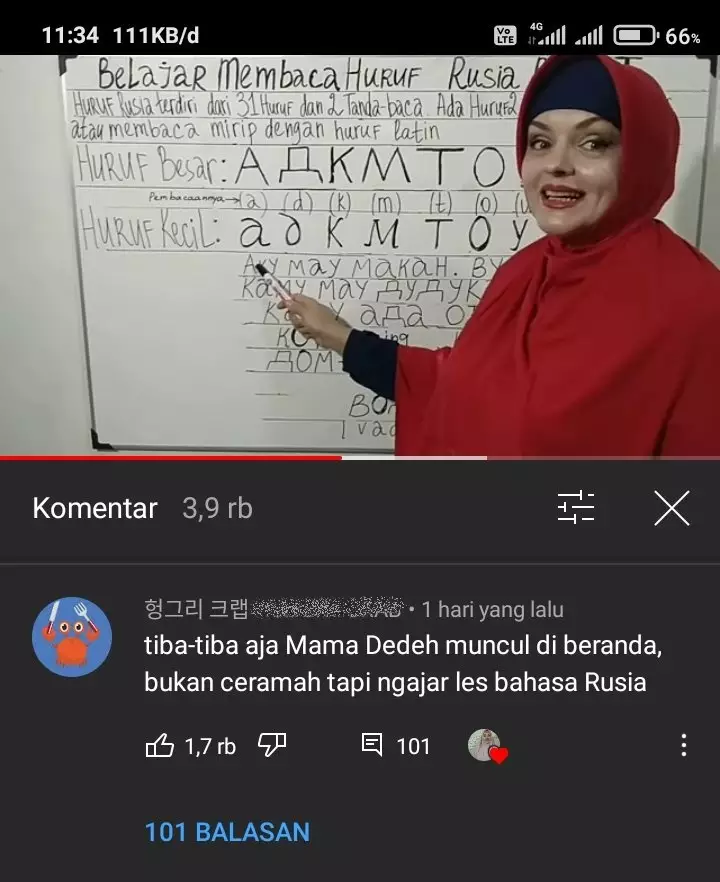 11:34 111KB/d
Vo LTE 4G 66%
BELAJAR MEMBACA HURUF RUSIA
HURUF Rusia terdiri dari 31 Huruf dan 2 Tanda baca. Ada Huruf2
atau membaca mirip dengan huruf latin
HURUF Besar: А Д К М Т О
Pembacaannya→ (a) (d) (k) (m) (t) (o)
HURUF Kecil: а д к м т о у
Аку мау макан. ву
каму мау дудук
ада
дом
Komentar 3,9 rb
헝그리 크랩 • 1 hari yang lalu
tiba-tiba aja Mama Dedeh muncul di beranda,
bukan ceramah tapi ngajar les bahasa Rusia
1,7 rb 101
101 BALASAN